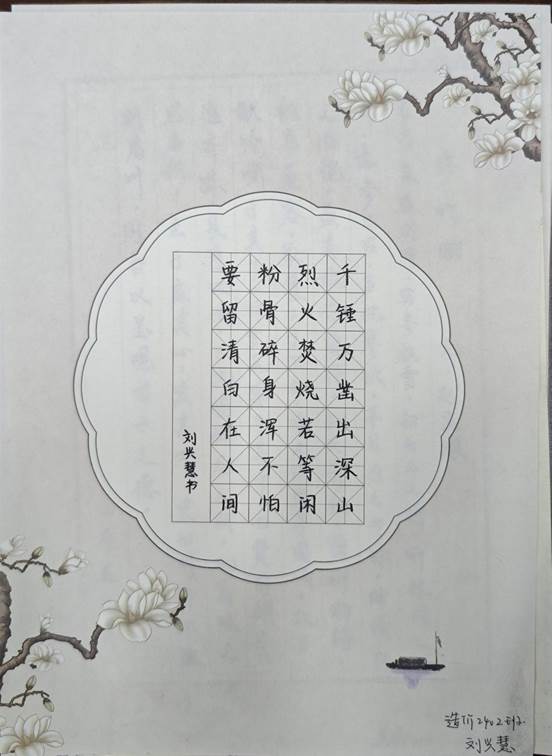 千锤万凿出深山
烈火焚烧若等闲
粉骨碎身浑不怕
要留清白在人间
刘兴慧书
造价2402班
刘兴慧